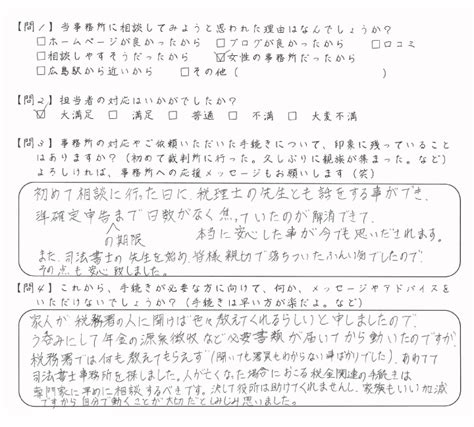 【問1】当事務所に相談してみようと思われた理由はなんでしょうか?
□ホームページが良かったから □ブログが良かったから □口コミ
□相談しやすそうだったから ☑女性の事務所だったから
□広島駅から近いから □その他( )
【問2】担当者の対応はいかがでしたか?
☑大満足 □満足 □普通 □不満 □大変不満
【問3】事務所の対応やご依頼いただいた手続きについて、印象に残っていること
はありますか?(初めて裁判所に行った。久しぶりに親族が集まった。など)
よろしければ、事務所への応援メッセージもお願いします(笑)
初めて相談に行った日に、税理士の先生とも話をする事ができ、
準確定申告の期限まで日数がなく焦っていたのが解消できて、
本当に安心した事が今でも思いだされます。
また、司法書士の先生を始め、皆様親切で落ちついたふんい気でしたので、
その点も安心致しました。
【問4】これから、手続きが必要な方に向けて、何か、メッセージやアドバイスを
いただけないでしょうか?(手続きは早い方が楽だよ。など)
家人が税務署の人に聞けば色々教えてくれるらしいと申しましたので、
う呑みにして年金の源泉徴収など必要書類が届いてから動いたのですが、
税務署では何も教えてもらえず(聞いても君質もわからない事ばかりでした)、あわてて
司法書士事務所を探しました。人が亡くなった場合におこる税金関連の手続きは
専門家に早めに相談するべきです。決して役所は助けてくれませんし、家族もいい加減
ですから自分で動くことが大切だとしみじみ思いました。